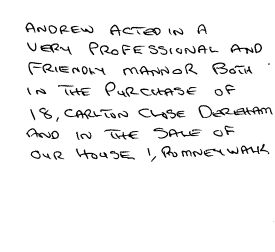 ANDREW ACTED IN A
VERY PROFESSIONAL AND
FRIENDLY MANNOR BOTH
IN THE PURCHASE OF
18, CARLTON CLOSE DEREHAM
AND IN THE SALE OF
OUR HOUSE 1, ROMNEY WALK